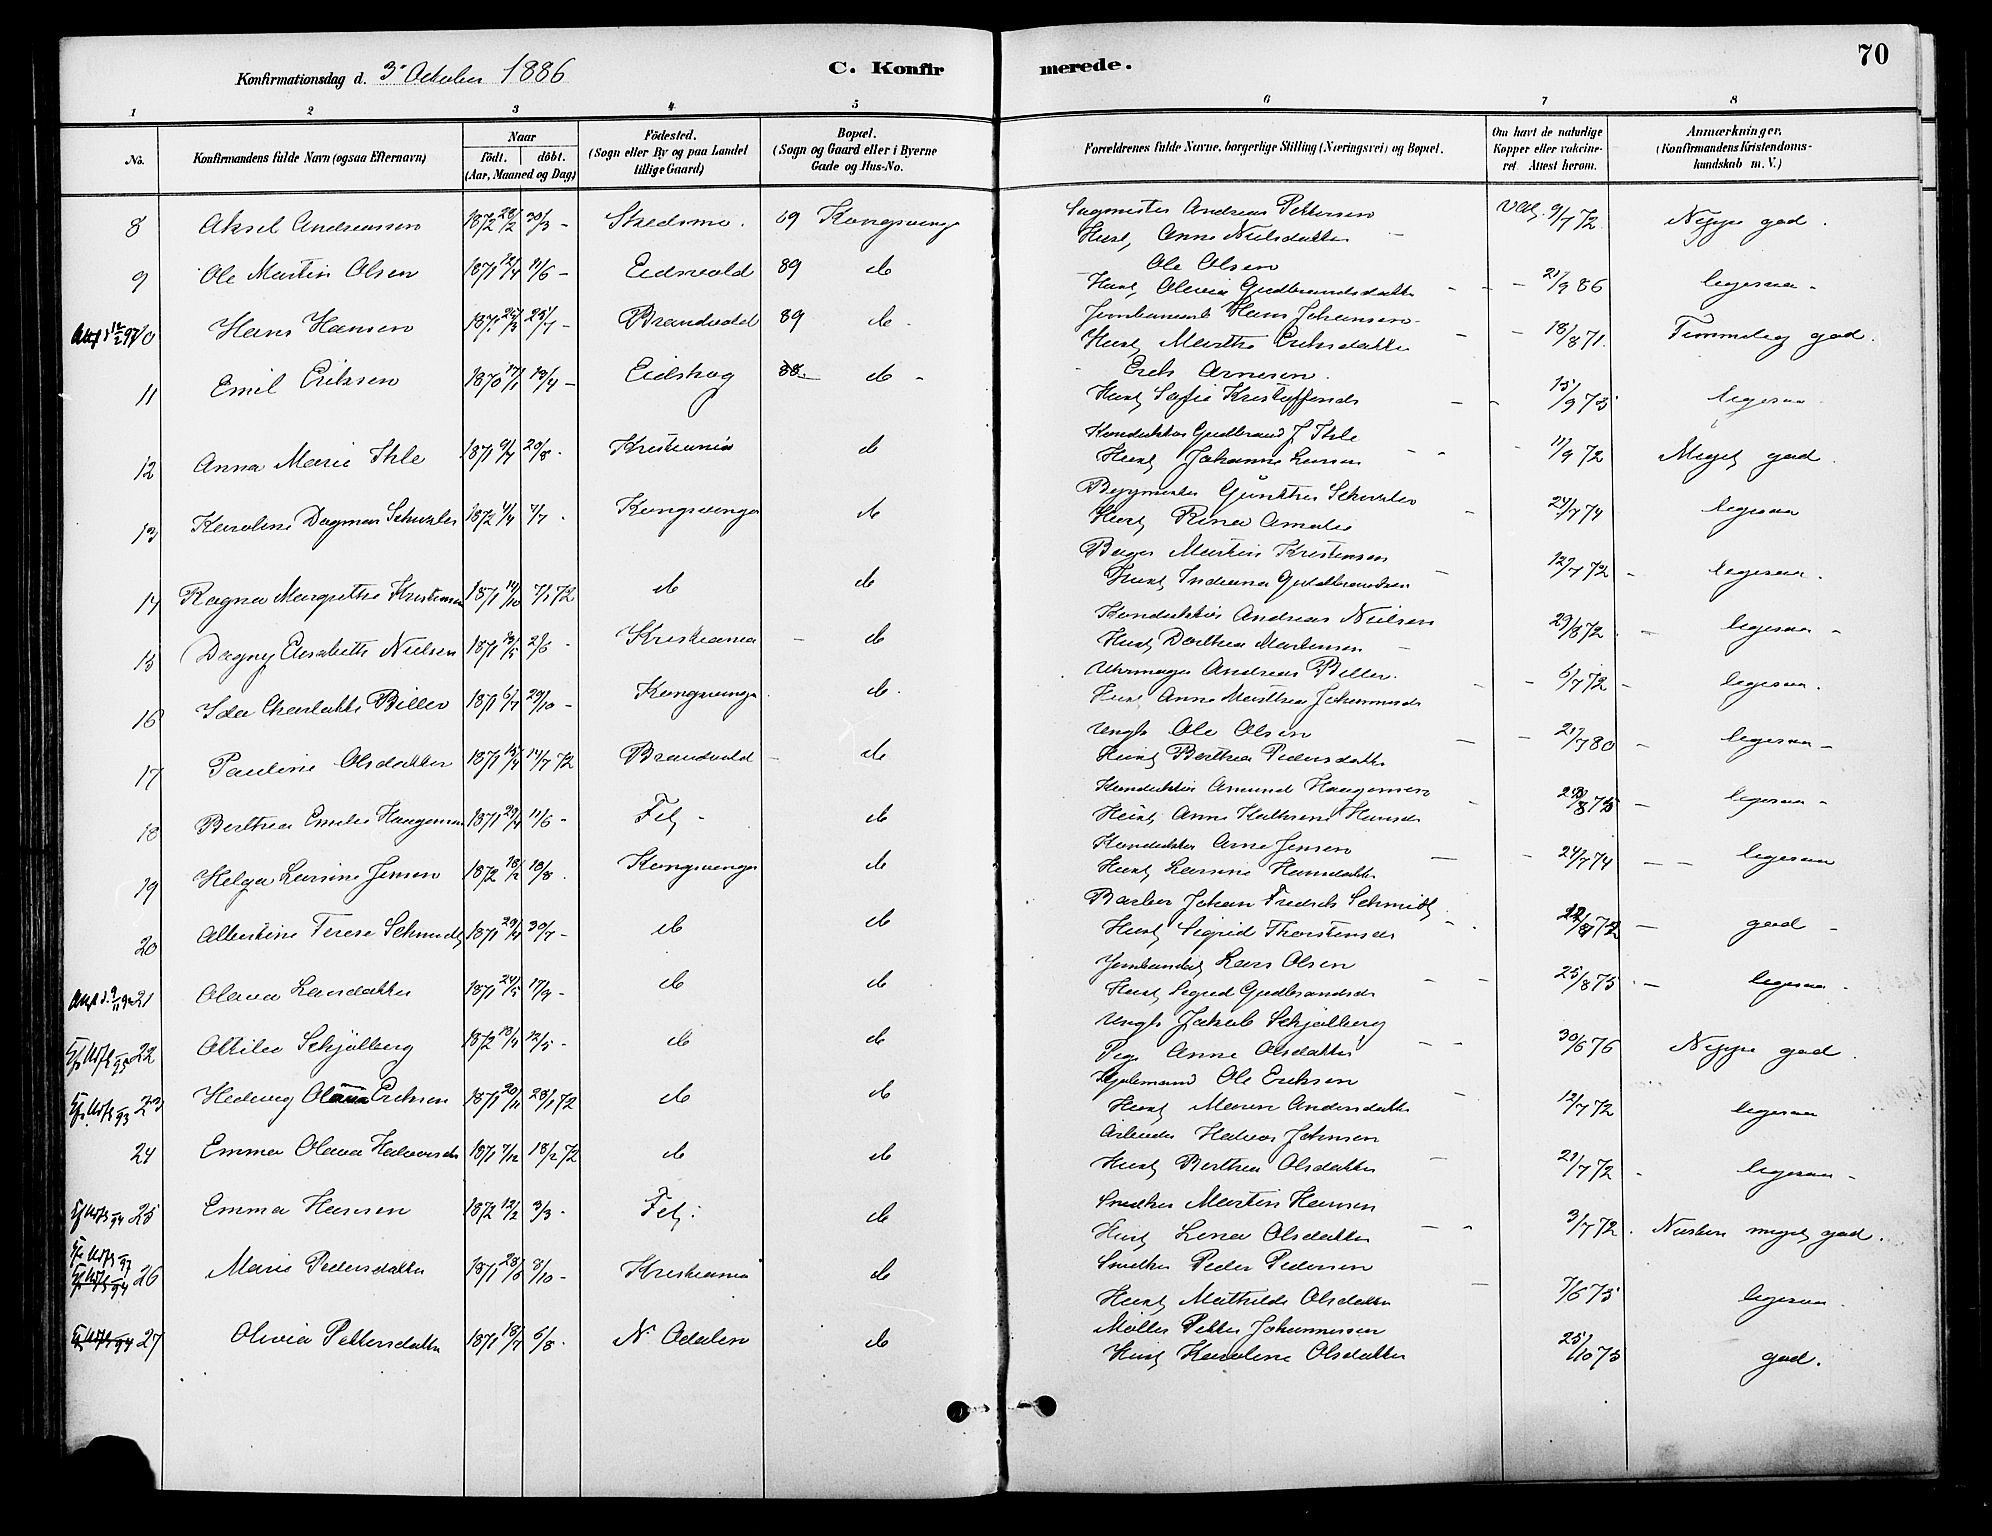 70
Konfirmationsdag d. 3' October 1886
C. Konfirmerede.
1 2 3 4 5 6 7 8
No.
Konfirmandens fulde Navn (ogsaa Efternavn)
Naar
födt. döbt.
(Aar, Maaned og Dag)
Födested.
(Sogn eller By og paa Landet
tillige Gaard)
Bopæl.
(Sogn og Gaard eller i Byerne
Gade og Hus-No.
Forældrenes fulde Navne, borgerlige Stilling (Næringsvei) og Bopæl.
Om havt de naturlige
Kopper eller vakcine-
ret Attest herom.
Anmærkninger.
(Konfirmandens Kristendoms-
kundskab m. V.)
8 Aksel Andreassen 1872 28/2 30/3 - Skedsmo. 69 Kongsvinger Sagmester Andreas Pettersen Vak. 9/7 72 Neppe god.
Hust, Anne Nielsdatter
9 Ole Martin Olsen 1871 12/4 11/6 - Eidsvold 89 do Ole Olsen
Hust, Olevia Gudbrandsdatter - - - 21/9 86 ligesaa -
10 Hans Hansen 1871 25/3 25/7 - Brandvold 89 do - Jernbanearb Hans Johansen
Hust, Marthe Eriksdatter - - 18/8 71. Temmelig god.
11 Emil Eriksen 1870 17/1 18/4 - Eidskog 88. do - Erik Arnesen.
Hust, Sofie Kristoffersdr - - 15/9 75 ligesaa.
12 Anna Marie Ihle 1871 9/4 20/8 - Kristiania do Konduktør Gudbrand J Ihle
Hust, Johanne Larsen - - - 11/9 72 Meget god.
13 Karoline Dagmar Schuster 1872 4/4 7/7 - Kongsvinger do Bygmester Günther Schuster
Hust, Rina Amalie - 24/7 74 ligesaa
14 Ragna Margrethe Kristensen 1871 14/10 7/1 72 do do Bager Martin Kristensen
Hust, Indiana Gudbrandsen - 12/7 72 - ligesaa.
15 Dagny Elisabeth Nielsen 1871 13/5 2/6 - Kristiania - do Konduktør Andreas Nielsen
Hust, Dorthea Mortensen - 29/8 72. - ligesaa -
16 Ida Charlotte Biller 1871 6/7 29/10 - Kongsvinger. do. Uhrmager Andreas Biller.
Hust Anne Marthea Johannesdr - - 6/7 72 - ligesaa.
17 Pauline Olsdatter 1871 15/4 14/7 72 Brandvold - do Ungk Ole Olsen
Hust, Berthea Pedersdatter - - 21/7 80 - ligesaa -
18 Berthea Emelie Haagensen 1871 29/4 11/6 - Fet, - do Konduktør Amund Haagensen
Hust, Anne Kathrine Hansdr - 28/8 75 - ligesaa -
19 Helga Larine Jensen 1872 18/2 18/8. Kongsvinger do Konduktør Arne Jensen
Hust, Larine Hansdatter - - 24/7 74 - - ligesaa
20 Albertine Terese Schmidt 1871 29/4 30/7 - do do Barber Johan Fredrik Schmidt,
Hust, Sigrid Thorstensdr - . 72 - god -
21 Olava Larsdatter 1871 24/5 17/9 - do do Jernbanearb, Lars Olsen
Hust, Sigrid Gudbrandsdr - - 25/8 75. - ligesaa -
22 Ottilie Schjølberg 1872 18/4 12/5 - do do Ungk Jakob Schjølberg
Pige Anne Olsdatter - - 30/6 76 Neppe god.
23 Hedevig Olava Eriksen 1871 20/11 28/1 72 do do Ole Eriksen
Hust, Maren Andersdatter - 12/7 72 ligesaa
24 Emma Olava Halvorsdr 1871 7/12 18/2 72 do do Arbeider Halvor Johnsen
Hust, Berthea Olsdatter - 21/7 72 - ligesaa -
25 Emma Hansen 1872 12/2 3/3 - Fet,. do Snedker Martin Hansen
Hust, Lena Olsdatter - - 3/7 72. Næsten meget god.
26 Marie Pedersdatter 1871 28/8 8/10 - Kristiania do Snedker Peder Pedersen
Hust, Mathilde Olsdatter - 7/6 75 ligesaa.
27 Olivia Pettersdatter 1871 18/7 6/8. N. Odalen do Møller Petter Johannessen
Hust Karoline Olsdatter 25/10 75 god.